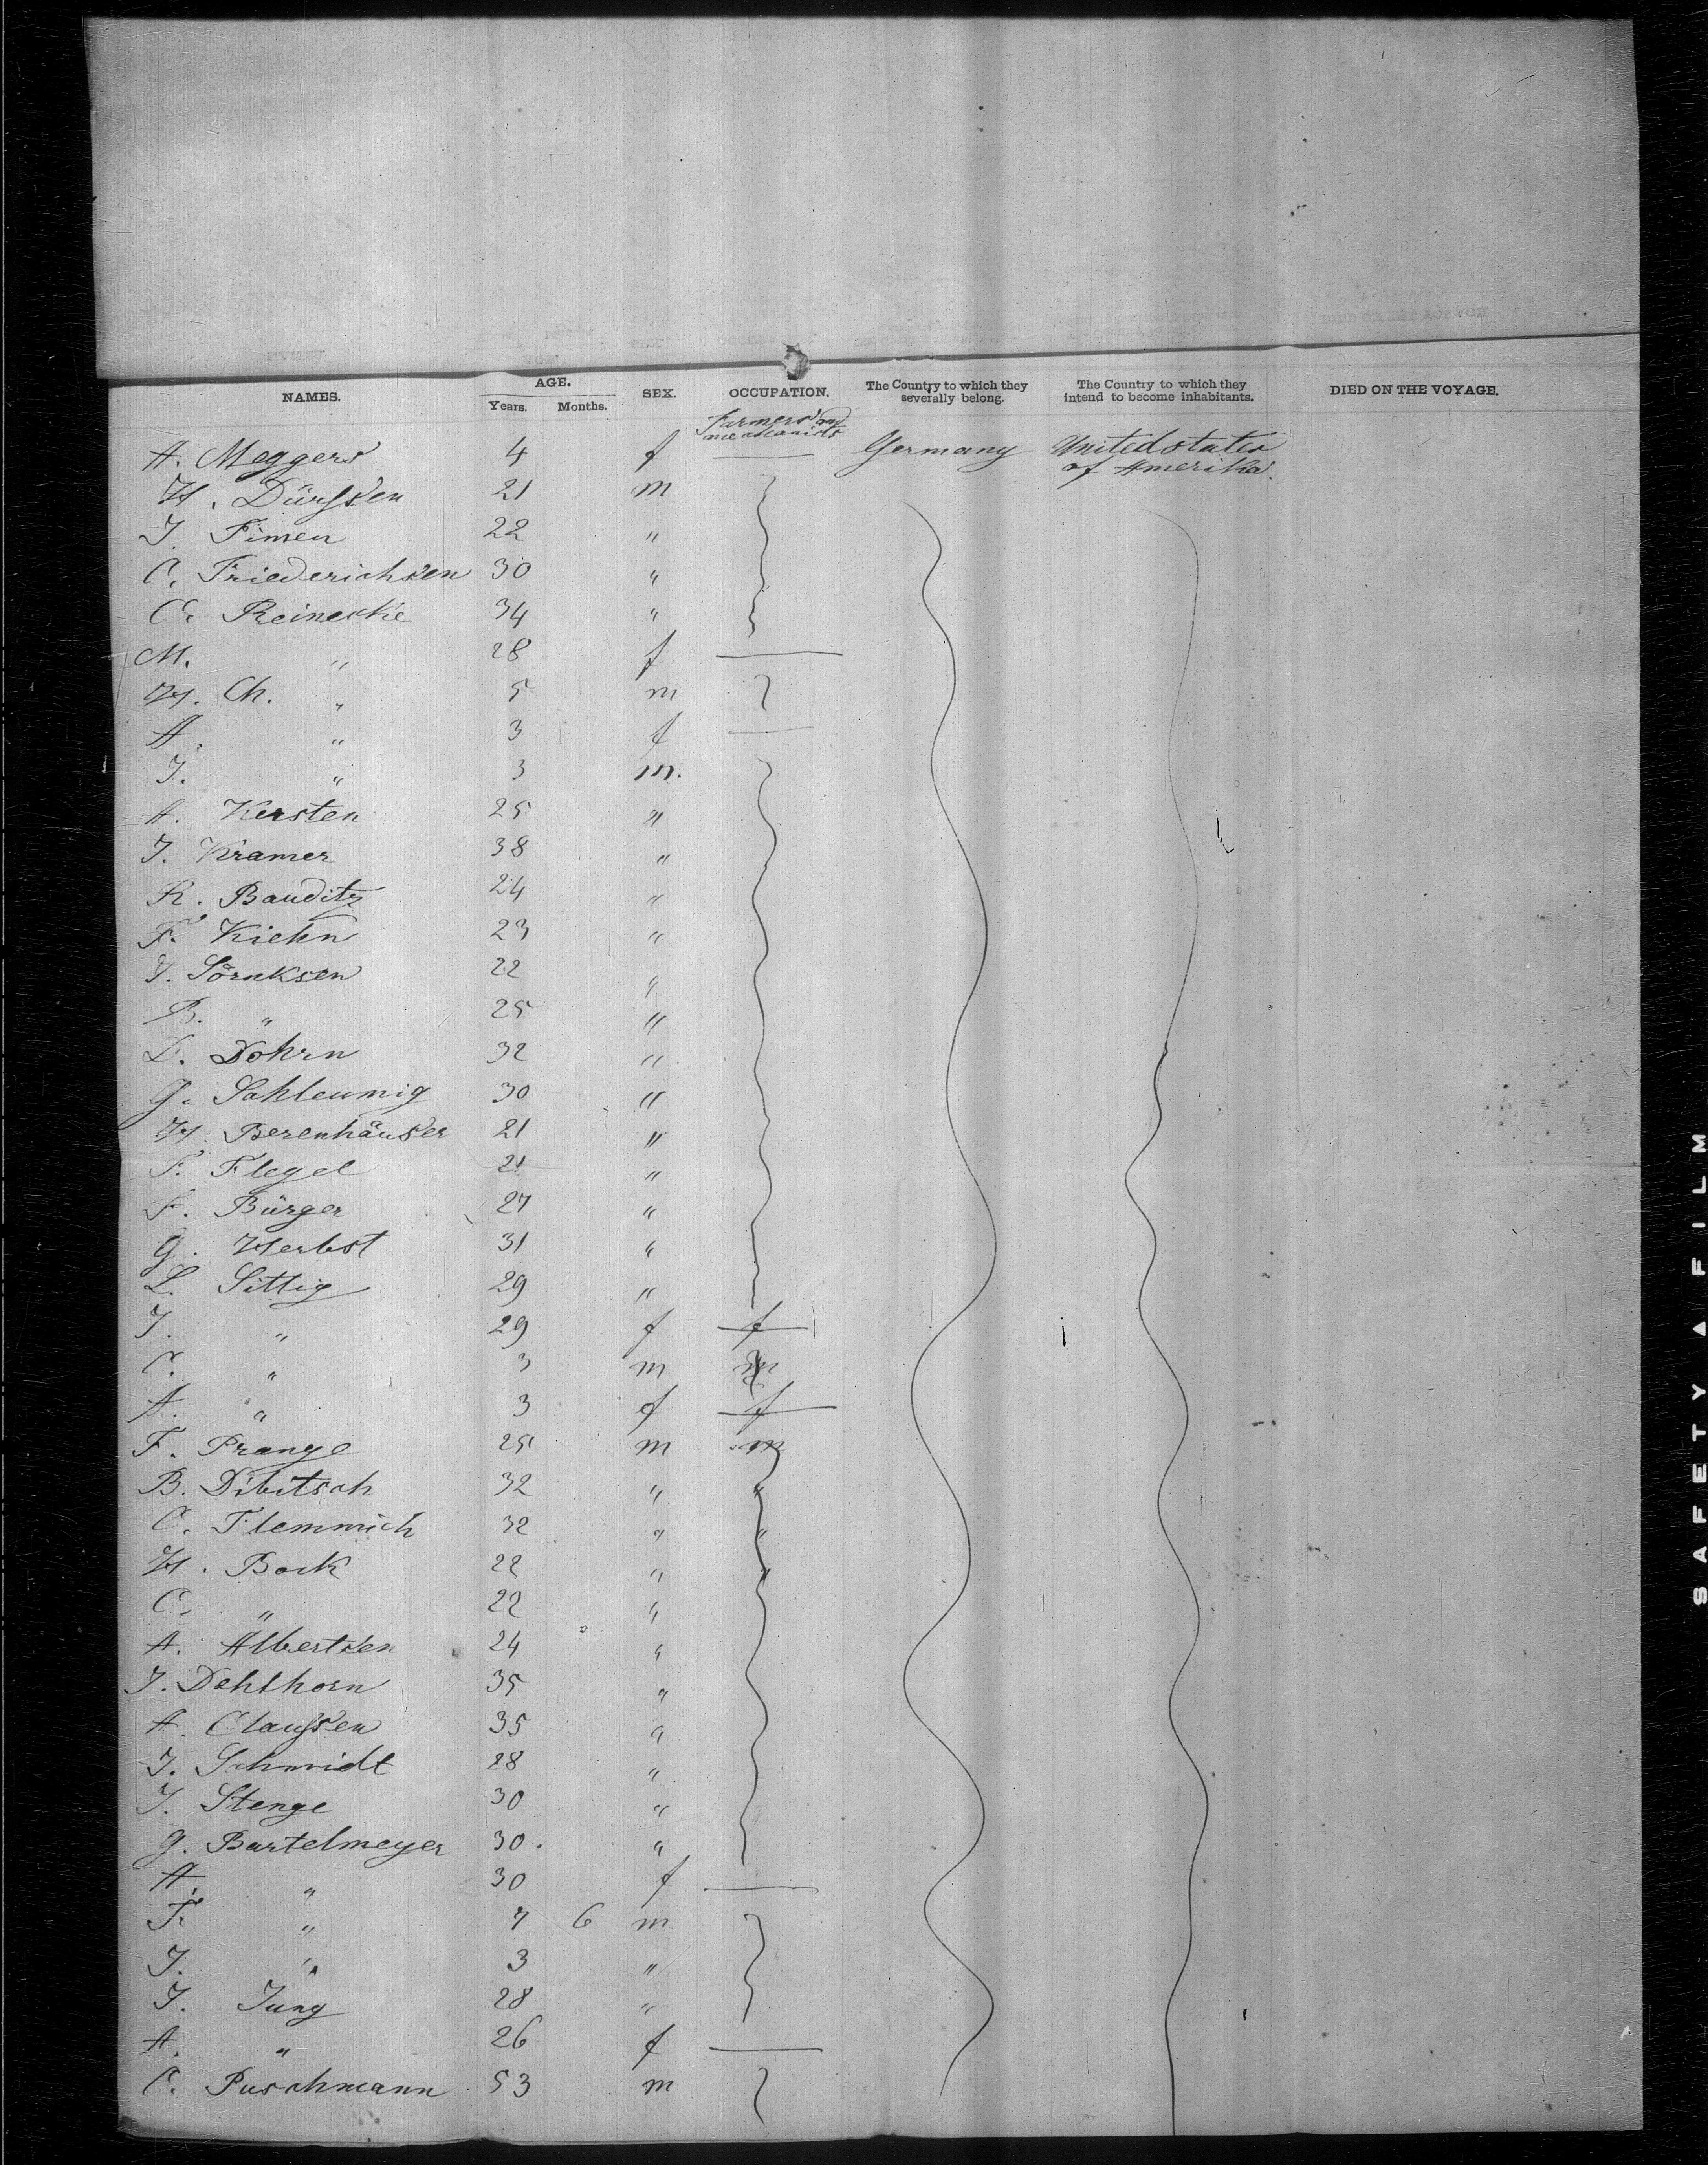 NAMES. AGE. SEX. OCCUPATION. The Country to which they severally belong. The Country to which they intend to become inhabitants. DIED ON THE VOYAGE.
Years. Months.
Farmers and
mechanicts
A. Meggers 4 f Germany United states
of Amerika.
H. Dürfsen 21 m
J. Fimen 22 "
C. Friederichsen 30 "
C. Reinecke 34 "
M. " 28 f
H. Ch. " 5 m
A. " 3 f
J. " 3 m.
A. Kersten 25 "
J. Kramer 38 "
R. Bauditz 24 "
F. Kiehn 23 "
J. Sönksen 22 "
B. " 25 "
D. Dohrn 32 "
G. Schleumig 30 "
H. Berenhäuser 21 "
F. Flegel 21 "
F. Bürger 27 "
G. Herbst 31 "
L. Sittig 29 "
J. " 29 f f
C. " 3 m m
A. " 3 f f
F. Prange 25 m m
B. Dibitsch 32 " "
C. Flemmich 32 " "
H. Bock 22 " "
C. " 22 "
A. Albertsen 24 "
J. Dehlhorn 35 "
A. Claufsen 35 "
J. Schmidt 28 "
J. Stenge 30 "
G. Bartelmeyer 30. "
A. " 30 f
F. " 7 6 m
J. " 3 "
J. Jung 28 "
A. " 26 f
C. Puschmann 53 m
SAFETY ▲ FILM